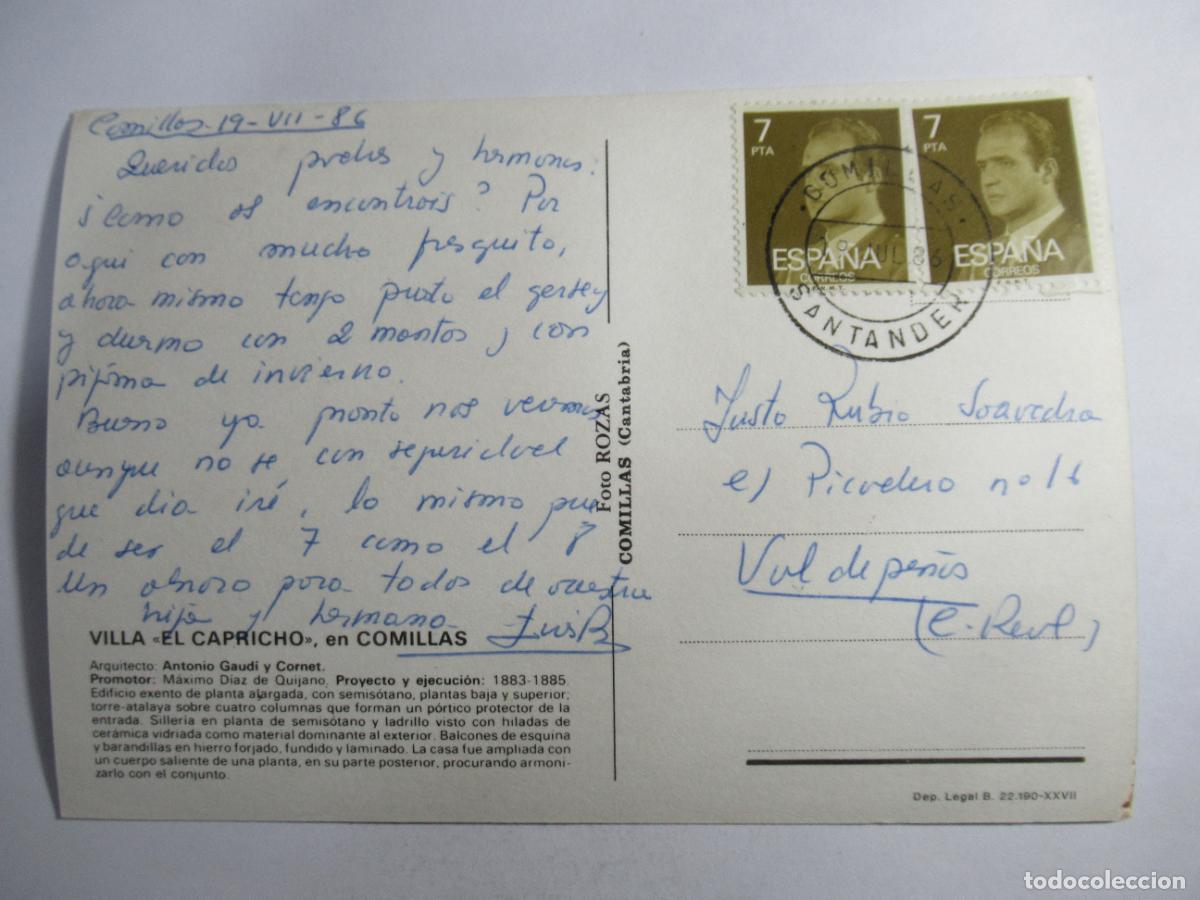 Comillas-19-VII-86
Queridos padres y hermanos:
¿Como os encontrais? Por
aqui con mucho fresquito,
ahora mismo tengo puesto el gersey
y duermo con 2 mantas y con
pijama de invierno.
Bueno ya pronto nos veremos
aunque no se con seguridad
que dia iré, lo mismo pue
de ser el 7 como el 8
Un abrazo para todos de vuestra
hija y hermana.
VILLA «EL CAPRICHO», en COMILLAS
Arquitecto: Antonio Gaudí y Cornet.
Promotor: Máximo Díaz de Quijano. Proyecto y ejecución: 1883-1885.
Edificio exento de planta alargada, con semisótano, plantas baja y superior;
torre-atalaya sobre cuatro columnas que forman un pórtico protector de la
entrada. Sillería en planta de semisótano y ladrillo visto con hiladas de
cerámica vidriada como material dominante al exterior. Balcones de esquina
y barandillas en hierro forjado, fundido y laminado. La casa fue ampliada con
un cuerpo saliente de una planta, en su parte posterior, procurando armoni-
zarlo con el conjunto.
Foto ROZAS
COMILLAS (Cantabria)
7
PTA
ESPAÑA
CORREOS
7
PTA
ESPAÑA
CORREOS
COMILLAS
JUL 86
SANTANDER
Justo Rubio Saavedra
c/ Picadero nº 16
Valdepeñas
(C. Real)
Dep. Legal B. 22.190-XXVII
todocoleccion